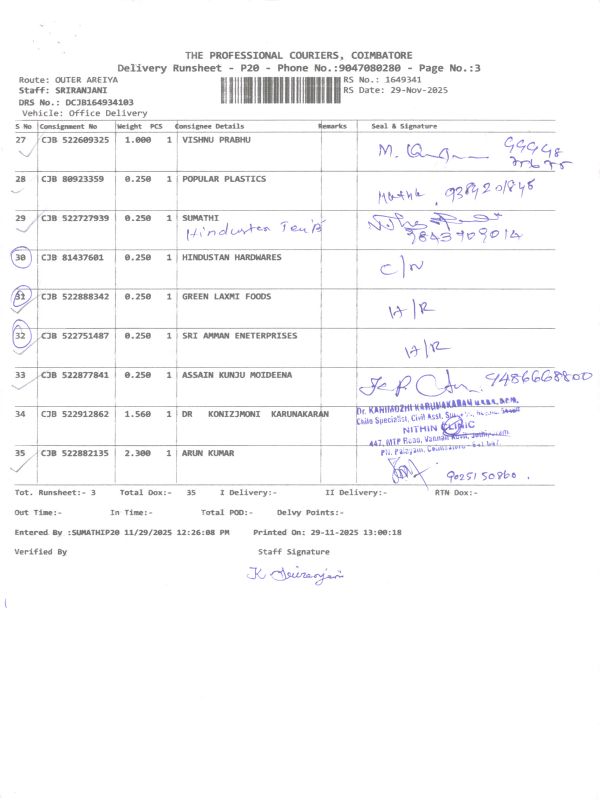 THE PROFESSIONAL COURIERS, COIMBATORE
Delivery Runsheet - P20 - Phone No.:9047080280 - Page No.:3
Route: OUTER AREIYA RS No.: 1649341
Staff: SRIRANJANI RS Date: 29-Nov-2025
DRS No.: DCJB164934103
Vehicle: Office Delivery
S No Consignment No Weight PCS Consignee Details Remarks Seal & Signature
27 CJB 522609325 1.000 1 VISHNU PRABHU
28 CJB 80923359 0.250 1 POPULAR PLASTICS
29 CJB 522727939 0.250 1 SUMATHI
9843909014
30 CJB 81437601 0.250 1 HINDUSTAN HARDWARES
31 CJB 522888342 0.250 1 GREEN LAXMI FOODS
32 CJB 522751487 0.250 1 SRI AMMAN ENETERPRISES
33 CJB 522877841 0.250 1 ASSAIN KUNJU MOIDEENA 9486668800
34 CJB 522912862 1.560 1 DR KONIZJMONI KARUNAKARAN
Dr. KANIMOZHI KARUNAKARAN
NITHIN CLINIC
35 CJB 522882135 2.300 1 ARUN KUMAR
9025150860.
Tot. Runsheet:- 3 Total Dox:- 35 I Delivery:- II Delivery:- RTN Dox:-
Out Time:- In Time:- Total POD:- Delvy Points:-
Entered By :SUMATHIP20 11/29/2025 12:26:08 PM Printed On: 29-11-2025 13:00:18
Verified By Staff Signature